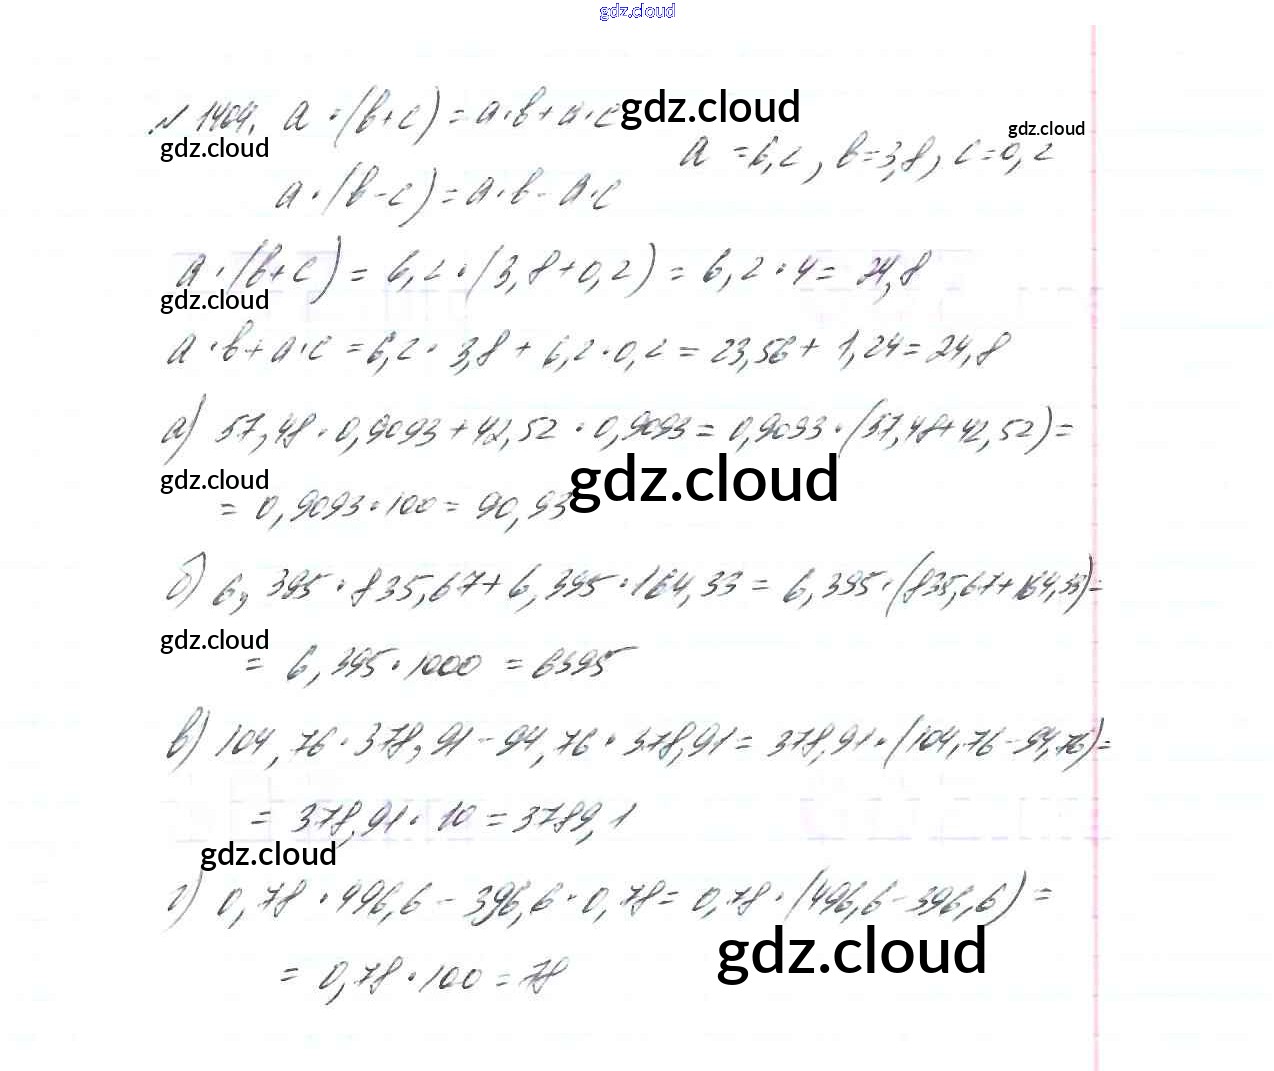 gdz.cloud
№ 1404. a · (b+c) = a·b + a·c gdz.cloud
gdz.cloud
gdz.cloud
a = 6,2 , b = 3,8 , c = 0,2
a · (b−c) = a·b − a·c
a · (b+c) = 6,2 · (3,8 + 0,2) = 6,2 · 4 = 24,8
gdz.cloud
a · b + a · c = 6,2 · 3,8 + 6,2 · 0,2 = 23,56 + 1,24 = 24,8
а) 57,48 · 0,9093 + 42,52 · 0,9093 = 0,9093 · (57,48 + 42,52) =
gdz.cloud
gdz.cloud
= 0,9093 · 100 = 90,93
б) 6,395 · 835,67 + 6,395 · 164,33 = 6,395 · (835,67 + 164,33) =
gdz.cloud
= 6,395 · 1000 = 6395
в) 104,76 · 378,91 − 94,76 · 378,91 = 378,91 · (104,76 − 94,76) =
= 378,91 · 10 = 3789,1
gdz.cloud
г) 0,78 · 496,6 − 396,6 · 0,78 = 0,78 · (496,6 − 396,6) =
gdz.cloud
= 0,78 · 100 = 78